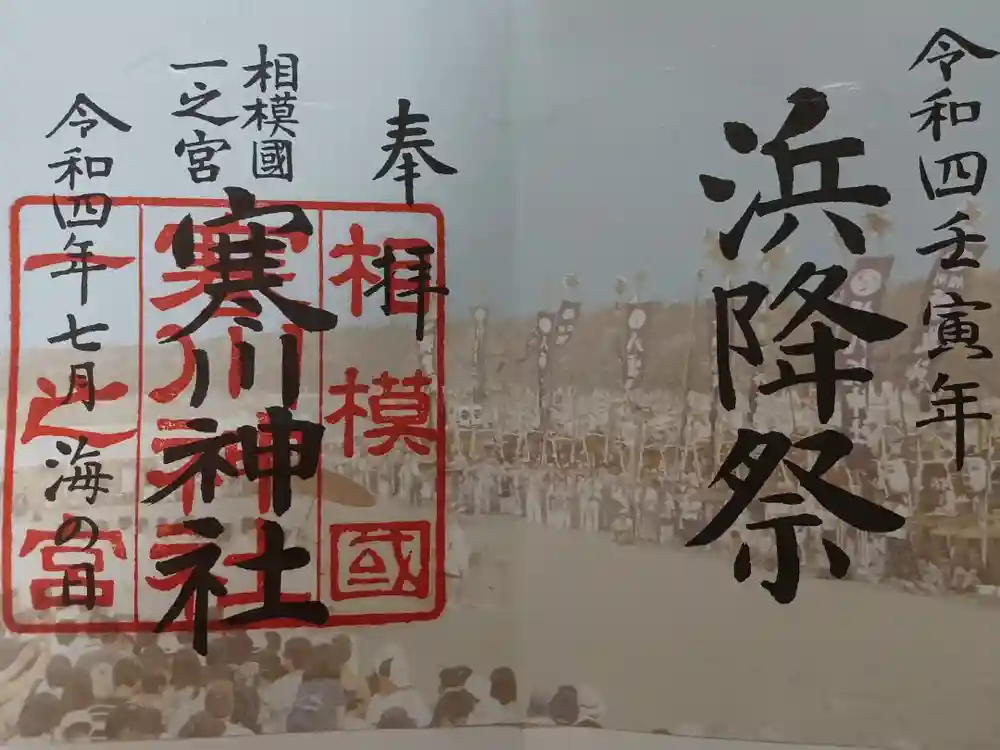 令和四壬寅年
浜降祭
奉拝
相模國
一之宮
寒川神社
令和四年七月海の日
相模國
寒川神社
一之宮